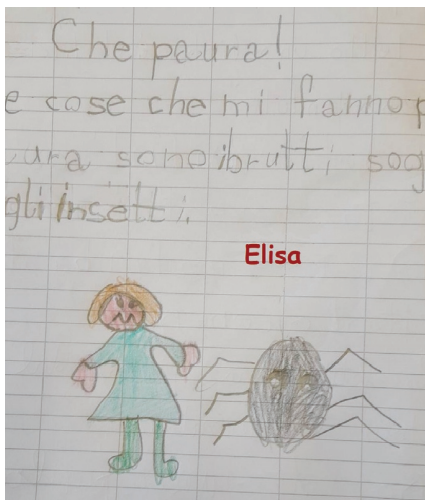 Che paura!
e cose che mi fanno p
ura sono i brutti, sog
gli insetti.
Elisa